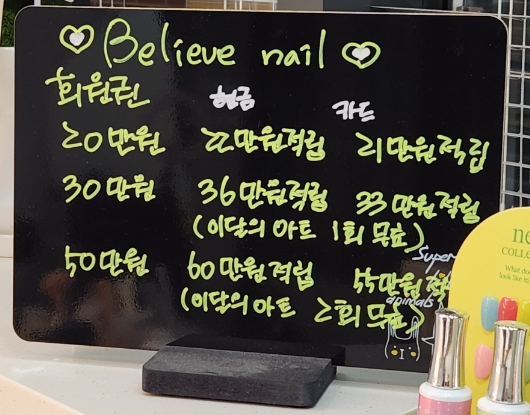 Believe nail
회원권 현금 카드
20만원 22만원적립 21만원적립
30만원 36만원적립 33만원적립
(이달의 아트 1회 무료)
50만원 60만원적립 55만원적
(이달의 아트 2회 무료)
Super
animals
ne
COLLE
What doe
look like in